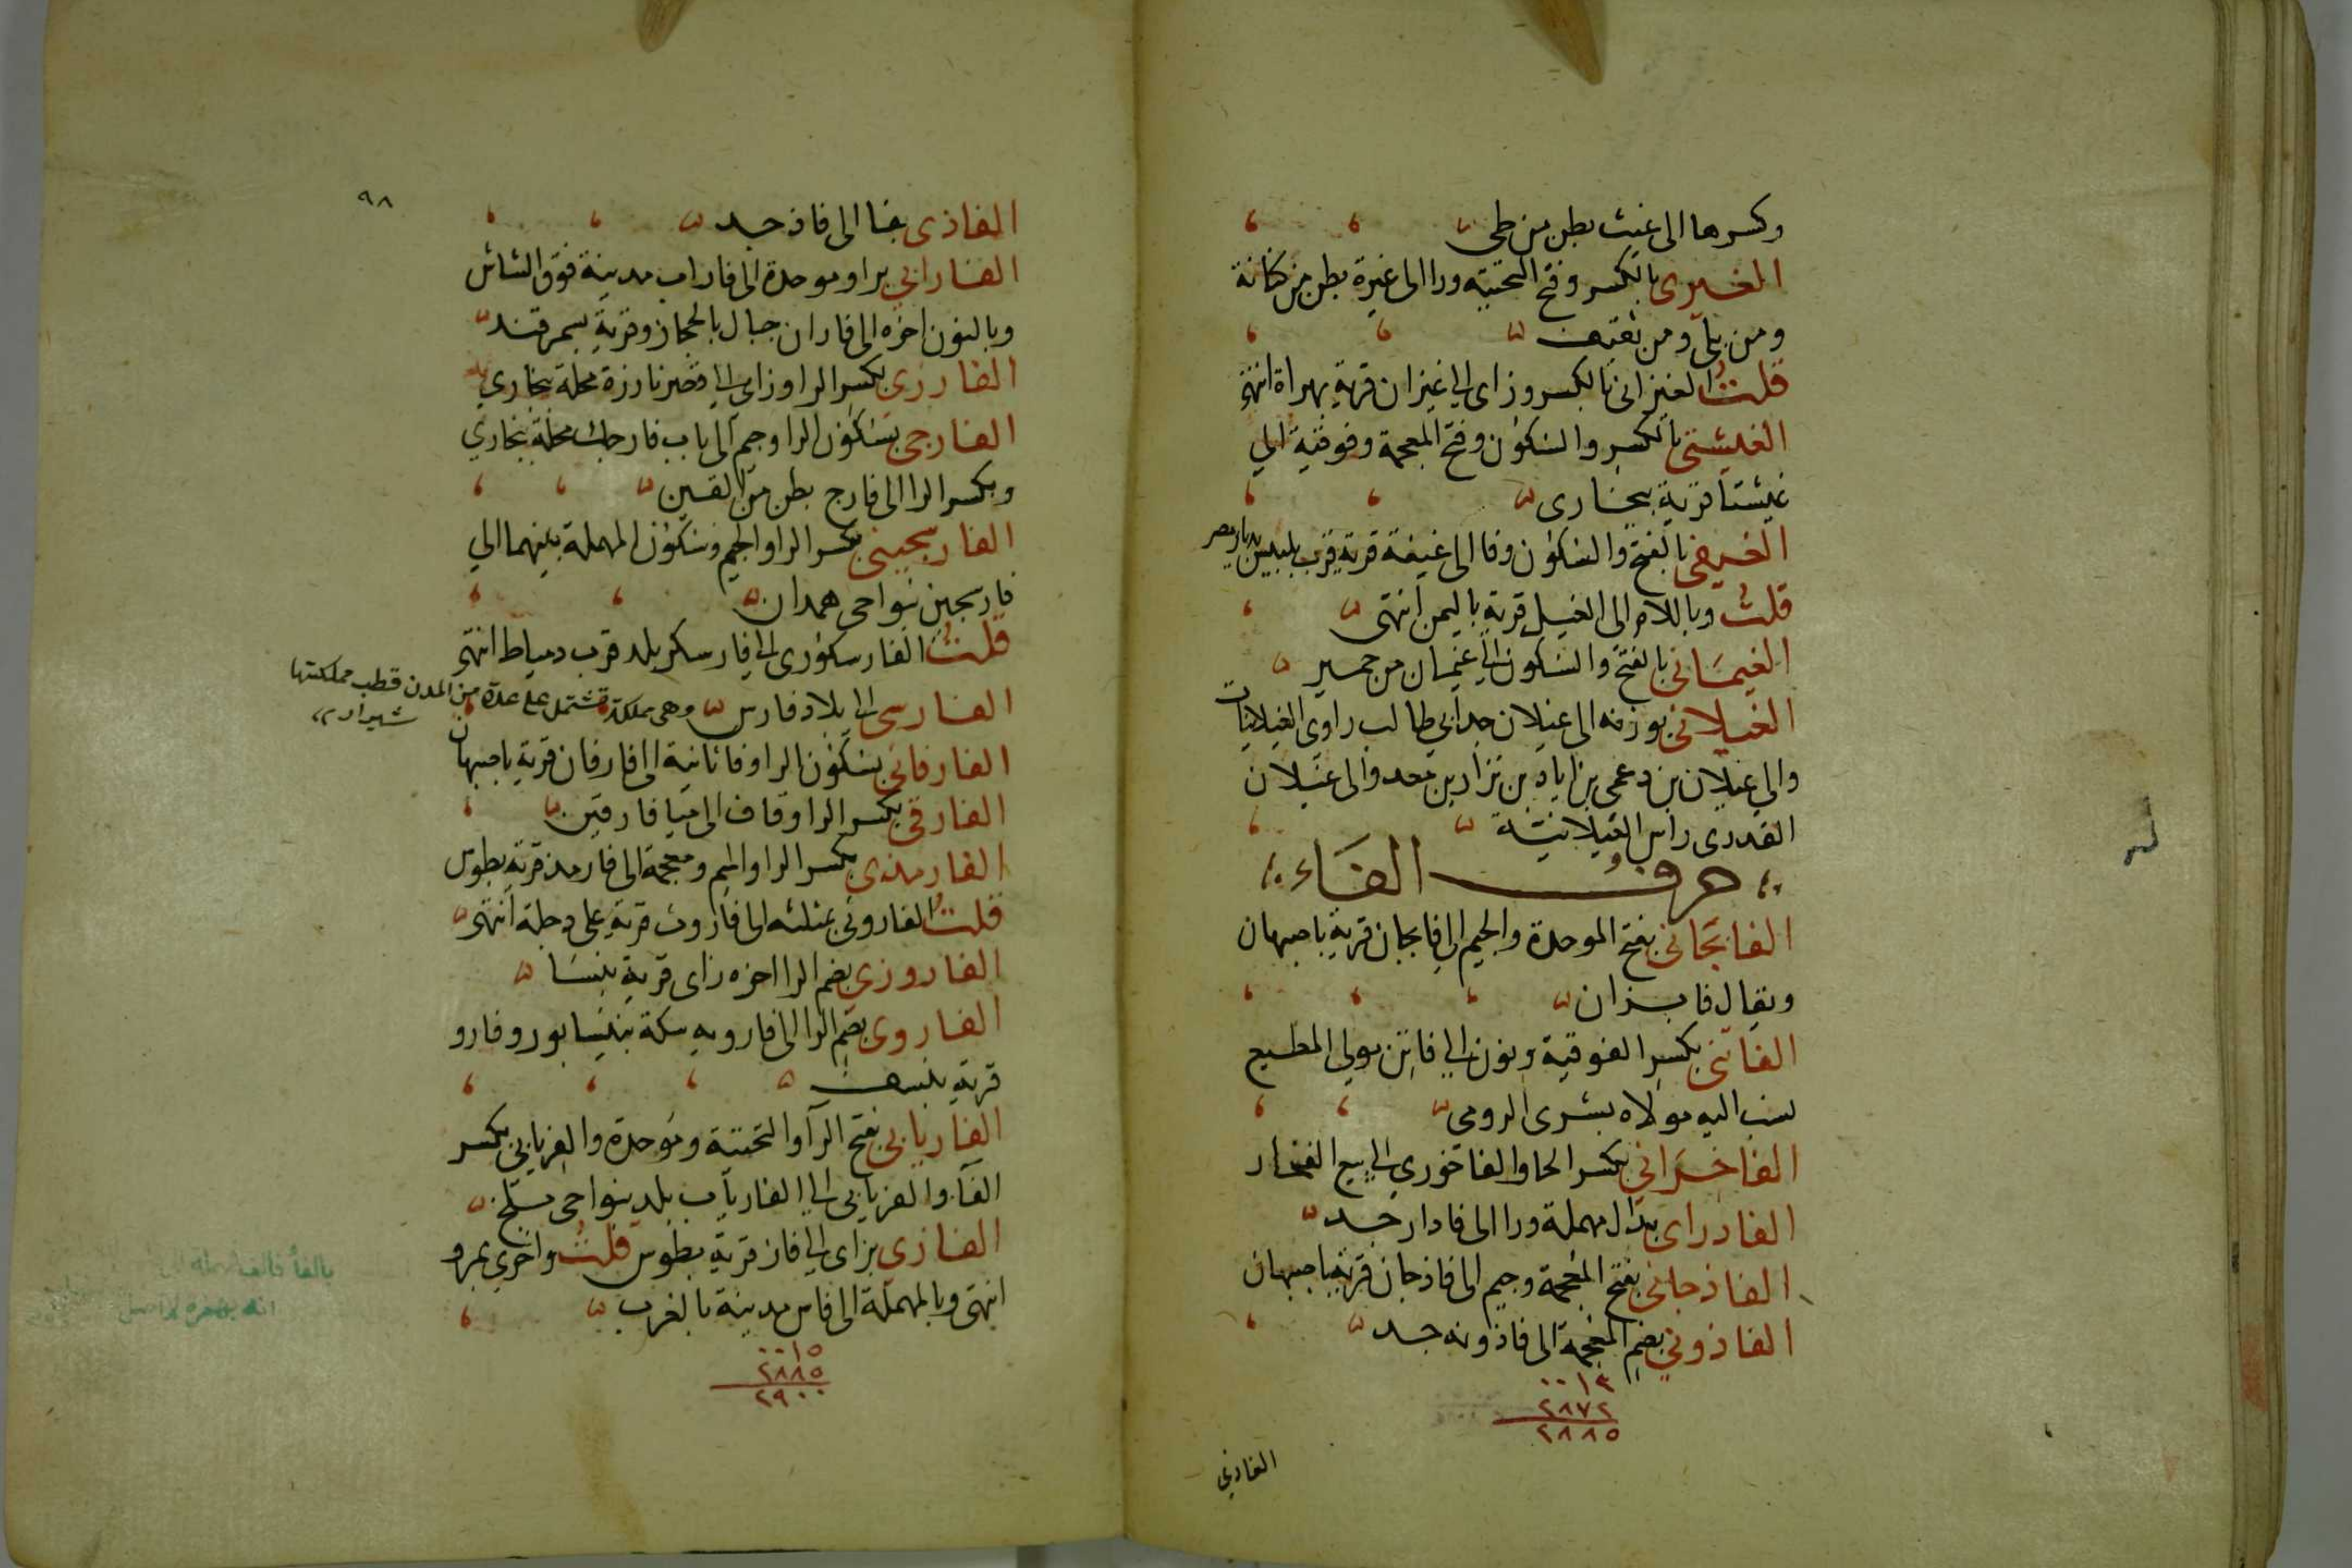 وكسرها الى غيث بطن من طي
الغيرى بالكسر وفتح التحتية ورا الى غيرة بطن من كنانة
ومن بلى ومن ثقيف
قلت الغيزانى بالكسر وزاى الى غيزان قرية بهراة انتهى
الغيشتى بالكسر والسكون وفتح المعجمة وفوقية الى
غيشتا قرية ببخارى
الغيفى بالفتح والسكون وفا الى غيفة قرية قرب بلبيس بديار مصر
قلت وباللام الى الغيل قرية باليمن انتهى
الغيمانى بالفتح والسكون الى غيمان من حمير
الغيلانى بوزنه الى غيلان جد ابي طالب راوى الغيلانيات
والى غيلان بن دعمى بن اياد بن نزار بن معد والى غيلان
القدرى راس الغيلانية
حرف الفاء
الفابجانى بفتح الموحدة والجيم الى فابجان قرية باصبهان
ويقال فابزان
الفاتنى بكسر الفوقية ونون الى فاتن مولى المطيع
نسب اليه مولاه بشرى الرومى
الفاخرانى بكسر الخا والفاخوري الى بيع الفخار
الفادراى بدال مهملة ورا الى فادار جد
الفاذجانى بفتح المعجمة وجيم الى فاذجان قرية باصبهان
الفاذونى بضم المعجمة الى فاذونه جد
٠٠١٣
٢٨٧٢
٢٨٨٥
٩٨
الفاذى بفا الى فاذ جد
الفارابي برا وموحدة الى فاراب مدينة فوق الشاش
وبالنون اخره الى فاران جبال بالحجاز وقرية بسمرقند
الفارزى بكسر الرا وزاى الى فارزة محلة ببخارى
الفارجى بسكون الرا وجيم الى باب فارجك محلة ببخارى
وبكسر الرا الى فارج بطن من القين
الفارسجينى بكسر الرا والجيم وسكون المهملة بينهما الى
فارسجين بنواحى همدان
قلت الفارسكورى الى فارسكر بلد قرب دمياط انتهى
الفارسى الى بلاد فارس وهى مملكة تشتمل على عدة من المدن قطب مملكتها
شيراز
الفارفانى بسكون الرا وفا ثانية الى فارفان قرية باصبهان
الفارقى بكسر الرا وقاف الى ميافارقين
الفارمذى بكسر الرا والميم ومعجمة الى فارمذ قرية بطوس
قلت الفاروثى بمثلثه الى فاروث قرية على دجلة انتهى
الفاروزى بضم الرا اخره زاى قرية بنسا
الفاروى بضم الرا الى فارويه سكة بنيسابور وفارو
قرية بنسف
الفاريابى بفتح الرا والتحتية وموحدة والفريابى بكسر
الفا والفريابى الى الفارياب بلد بنواحى بلخ
الفازى بزاى الى فاز قرية بطوس قلت واخرى بمرو
انتهى وبالمهملة الى فاس مدينة بالغرب
٠٠١٥
٢٨٨٥
٢٩٠٠